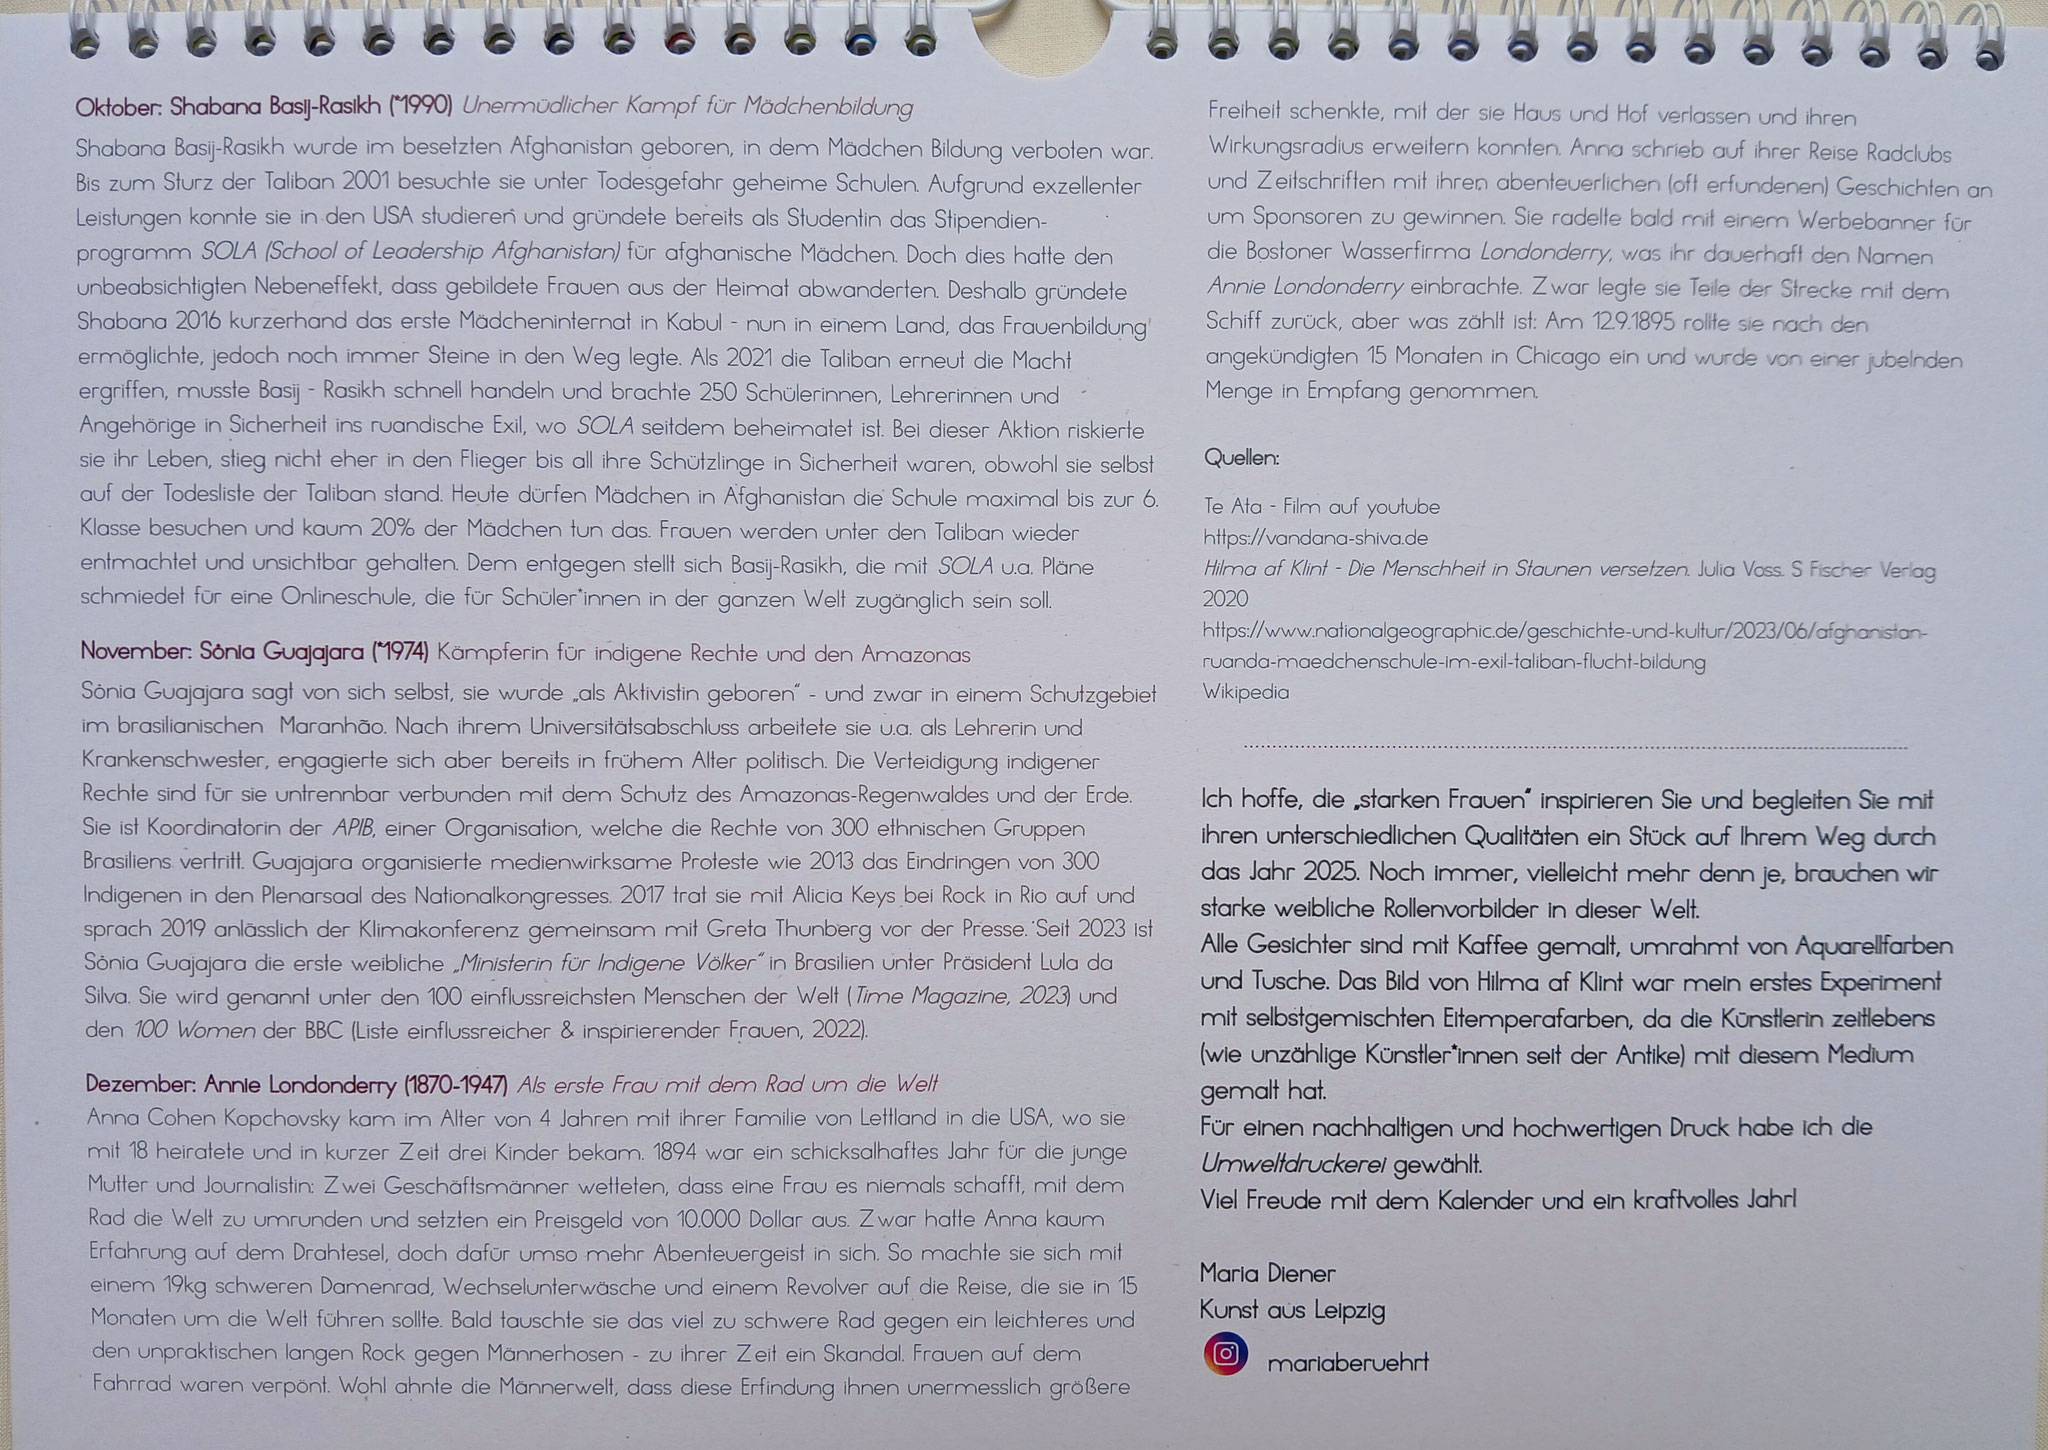 Oktober: Shabana Basij-Rasikh (*1990) Unermüdlicher Kampf für Mädchenbildung
Shabana Basij-Rasikh wurde im besetzten Afghanistan geboren, in dem Mädchen Bildung verboten war.
Bis zum Sturz der Taliban 2001 besuchte sie unter Todesgefahr geheime Schulen. Aufgrund exzellenter
Leistungen konnte sie in den USA studieren und gründete bereits als Studentin das Stipendien-
programm SOLA (School of Leadership Afghanistan) für afghanische Mädchen. Doch dies hatte den
unbeabsichtigten Nebeneffekt, dass gebildete Frauen aus der Heimat abwanderten. Deshalb gründete
Shabana 2016 kurzerhand das erste Mädcheninternat in Kabul - nun in einem Land, das Frauenbildung
ermöglichte, jedoch noch immer Steine in den Weg legte. Als 2021 die Taliban erneut die Macht
ergriffen, musste Basij - Rasikh schnell handeln und brachte 250 Schülerinnen, Lehrerinnen und
Angehörige in Sicherheit ins ruandische Exil, wo SOLA seitdem beheimatet ist. Bei dieser Aktion riskierte
sie ihr Leben, stieg nicht eher in den Flieger bis all ihre Schützlinge in Sicherheit waren, obwohl sie selbst
auf der Todesliste der Taliban stand. Heute dürfen Mädchen in Afghanistan die Schule maximal bis zur 6.
Klasse besuchen und kaum 20% der Mädchen tun das. Frauen werden unter den Taliban wieder
entmachtet und unsichtbar gehalten. Dem entgegen stellt sich Basij-Rasikh, die mit SOLA u.a. Pläne
schmiedet für eine Onlineschule, die für Schüler*innen in der ganzen Welt zugänglich sein soll.
November: Sônia Guajajara (*1974) Kämpferin für indigene Rechte und den Amazonas
Sônia Guajajara sagt von sich selbst, sie wurde „als Aktivistin geboren" - und zwar in einem Schutzgebiet
im brasilianischen Maranhão. Nach ihrem Universitätsabschluss arbeitete sie u.a. als Lehrerin und
Krankenschwester, engagierte sich aber bereits in frühem Alter politisch. Die Verteidigung indigener
Rechte sind für sie untrennbar verbunden mit dem Schutz des Amazonas-Regenwaldes und der Erde.
Sie ist Koordinatorin der APIB, einer Organisation, welche die Rechte von 300 ethnischen Gruppen
Brasiliens vertritt. Guajajara organisierte medienwirksame Proteste wie 2013 das Eindringen von 300
Indigenen in den Plenarsaal des Nationalkongresses. 2017 trat sie mit Alicia Keys bei Rock in Rio auf und
sprach 2019 anlässlich der Klimakonferenz gemeinsam mit Greta Thunberg vor der Presse. Seit 2023 ist
Sônia Guajajara die erste weibliche „Ministerin für Indigene Völker" in Brasilien unter Präsident Lula da
Silva. Sie wird genannt unter den 100 einflussreichsten Menschen der Welt (Time Magazine, 2023) und
den 100 Women der BBC (Liste einflussreicher & inspirierender Frauen, 2022).
Dezember: Annie Londonderry (1870-1947) Als erste Frau mit dem Rad um die Welt
Anna Cohen Kopchovsky kam im Alter von 4 Jahren mit ihrer Familie von Lettland in die USA, wo sie
mit 18 heiratete und in kurzer Zeit drei Kinder bekam. 1894 war ein schicksalhaftes Jahr für die junge
Mutter und Journalistin: Zwei Geschäftsmänner wetteten, dass eine Frau es niemals schafft, mit dem
Rad die Welt zu umrunden und setzten ein Preisgeld von 10.000 Dollar aus. Zwar hatte Anna kaum
Erfahrung auf dem Drahtesel, doch dafür umso mehr Abenteuergeist in sich. So machte sie sich mit
einem 19kg schweren Damenrad, Wechselunterwäsche und einem Revolver auf die Reise, die sie in 15
Monaten um die Welt führen sollte. Bald tauschte sie das viel zu schwere Rad gegen ein leichteres und
den unpraktischen langen Rock gegen Männerhosen - zu ihrer Zeit ein Skandal. Frauen auf dem
Fahrrad waren verpönt. Wohl ahnte die Männerwelt, dass diese Erfindung ihnen unermesslich größere
Freiheit schenkte, mit der sie Haus und Hof verlassen und ihren
Wirkungsradius erweitern konnten. Anna schrieb auf ihrer Reise Radclubs
und Zeitschriften mit ihren abenteuerlichen (oft erfundenen) Geschichten an
um Sponsoren zu gewinnen. Sie radelte bald mit einem Werbebanner für
die Bostoner Wasserfirma Londonderry, was ihr dauerhaft den Namen
Annie Londonderry einbrachte. Zwar legte sie Teile der Strecke mit dem
Schiff zurück, aber was zählt ist: Am 12.9.1895 rollte sie nach den
angekündigten 15 Monaten in Chicago ein und wurde von einer jubelnden
Menge in Empfang genommen.
Quellen:
Te Ata - Film auf youtube
https://vandana-shiva.de
Hilma af Klint - Die Menschheit in Staunen versetzen. Julia Voss. S Fischer Verlag
2020
https://www.nationalgeographic.de/geschichte-und-kultur/2023/06/afghanistan-
ruanda-maedchenschule-im-exil-taliban-flucht-bildung
Wikipedia
Ich hoffe, die „starken Frauen" inspirieren Sie und begleiten Sie mit
ihren unterschiedlichen Qualitäten ein Stück auf Ihrem Weg durch
das Jahr 2025. Noch immer, vielleicht mehr denn je, brauchen wir
starke weibliche Rollenvorbilder in dieser Welt.
Alle Gesichter sind mit Kaffee gemalt, umrahmt von Aquarellfarben
und Tusche. Das Bild von Hilma af Klint war mein erstes Experiment
mit selbstgemischten Eitemperafarben, da die Künstlerin zeitlebens
(wie unzählige Künstler*innen seit der Antike) mit diesem Medium
gemalt hat.
Für einen nachhaltigen und hochwertigen Druck habe ich die
Umweltdruckerei gewählt.
Viel Freude mit dem Kalender und ein kraftvolles Jahr!
Maria Diener
Kunst aus Leipzig
mariaberuehrt